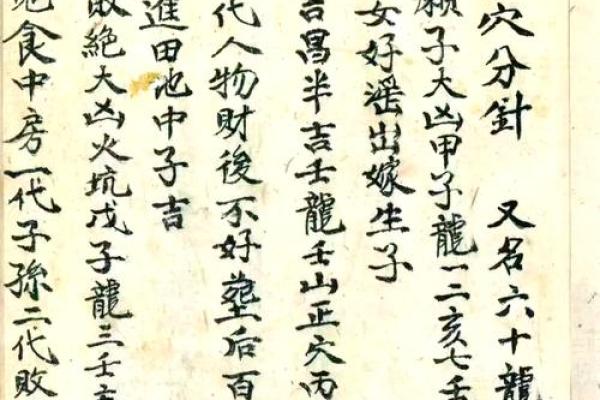 穴分針 又名六十龍
癩子大凶甲子龍一二亥七壬
女好滛出嫁生子
吉昌半吉壬龍壬山正穴丙
代人物財後不好塟后百
進田地中子吉
敗絶大凶火坑戊子龍三壬亥
地食中房一代子孫二代敗